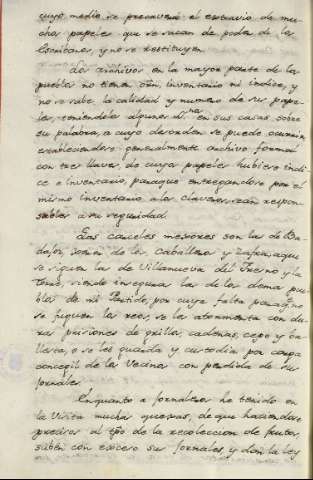 cuyo medio se precaverá el extravio de mu-
chos papeles que se sacan de poder de los
Escrivanos, y no se restituyen.
Los archivos en la mayor parte de los
pueblos no tienen orn, inventario ni indice, y
no se sabe la calidad y numero de sus pape-
les, teniendolos algunos en sus casas sobre
su palabra, a cuyo desorden se puede ocurrir,
estableciendose generalmente archivo formal
con tres llaves de cuyos papeles hubiese indi-
ce e Inventario, para que entregandose por el
mismo inventario a los claveros sean respon-
sables a su seguridad.
Las carceles mejores son las de Ba-
dajoz, Xerez de los Caballeros y Zafra, a que
se siguen la de Villanueva del Fresno y la
Torre, siendo inseguras las de los demas pue-
blos de mi Partido, por cuya falta para q no
se fuguen los reos, se les atormenta con du-
ras prisiones de grillos, cadenas, cepo y
o se les guarda y custodia por carga
concegil de los Vecinos con perdida de sus
jornales.
En quanto a jornaleros he tenido en
la Visita muchas quexas, de que haciendose
precisos al tpo de la recoleccion de frutos,
suben con exceso sus jornales, y dan la ley